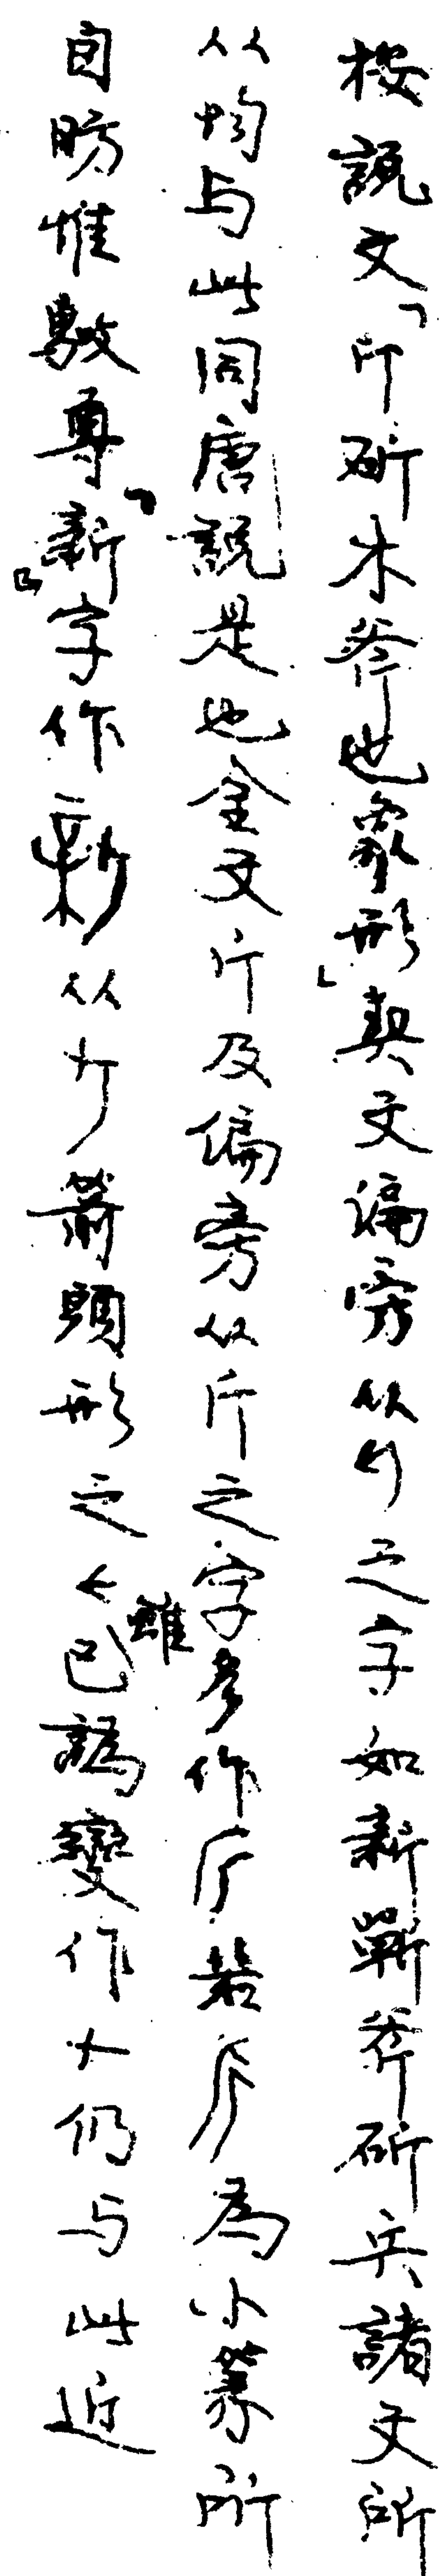 按説文「斤斫木斧也象形」契文偏旁从斤之字如新斳斧斫兵諸文所
从均与此同唐説是也金文斤及偏旁从斤之字多作斤若斤為小篆所
自昉惟𢾭尊「新」字作新从斤葥頭形之ㄑ雖已譌變作十仍与此近